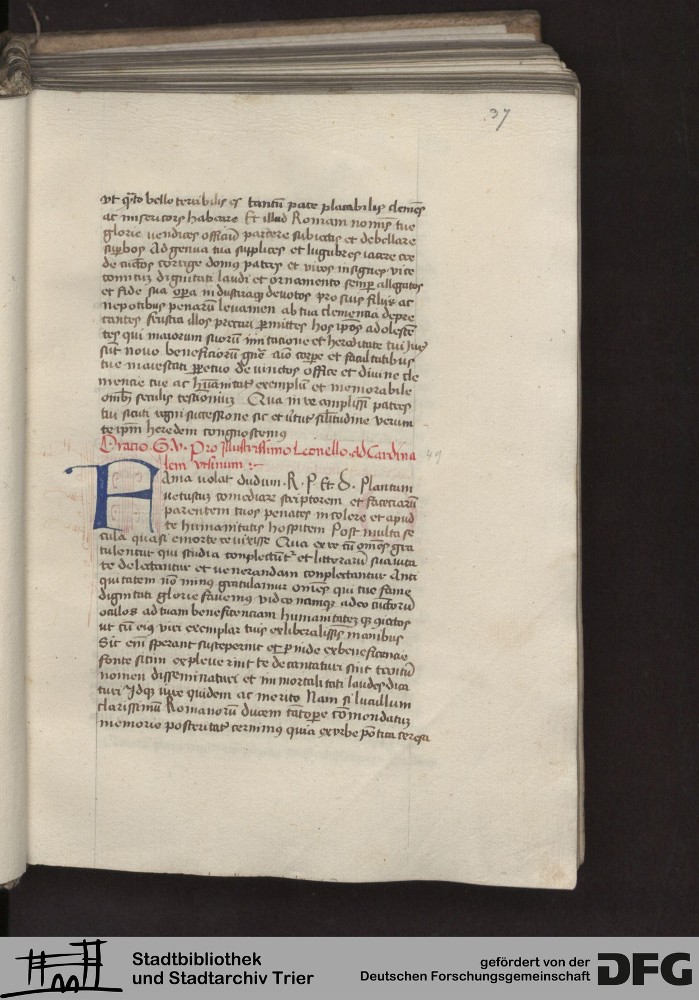 37
vt q̃to bello terribilis es tantũ pace placabilis clemẽs
ac misericors habeare Et illud Romam nomĩs tue
glorie vendices officiũ parcere subiectis et debellare
suꝑbos Ad genua tua supplices et lugubres iacere cce
de cũctos corrige domus patres et viros insignes vice
comituȝ dignitati laudi et ornamento semꝑ allegatos
et fide sua oꝑa industriaqȝ deuotos pro suis filijs ac
nepotibus penarũ leuamen ab tua clementia depre
cantes frustra illos precari ꝑmittes hos ip̃os adolescẽ
tes qui maiorum suorũ imitatione et hereditate tui
sũt nouo beneficiorũ gñe aĩo corpe et facultatibus
tue maiestati ꝑpetuo deuinctos office et diuine cle
mencie tue ac hũanitat exemplũ et memorabile
om̃ib seculis testĩoniuȝ Qua in re amplissi patres
tui sicuti regni successione sic et ũtutꝰ silitudine verum
te ip̃m heredem congnoscemus
Oratio G. v. Pro Jllustrissimo Leonello ad Cardina
lem vrsinum
49
FAma volat dudum R. P. Et D. Plautum
vetustuȝ comediare scriptorem et faceciarũ
parentem tuos penates incolere et apud
te humanitatis hospitem Post multa se
cula quasi e morte reuixisse Qua ex re cũ om̃es gra
tulentur qui studia conplectũt et litterarũ suauita
te delectantur et venerandam conplectantur Anti
quitatem nõ minꝰ gratulamur om̃es qui tue fame
dignitati glorie fauemus video namqȝ adeo cũctorũ
oculos ad tuam beneficenciam humanitateȝ qȝ
ut cũ eiꝰ viri exemplar tuis ex liberalissĩs manibus
Sic em̃ sperant susceperint et ꝓinde ex beneficencie
fonte sitim expleuerint te decantaturi sint tuũ
nomen disseminaturi et immortalitati laudes dica
turi Jdqȝ iure quidem ac merito Nam si lucullum
clarissimũ Romanorũ ducem tãtope cõmendatuȝ
memorie posteritat cernimus quia ex vrbe põtica cerasi
Stadtbibliothek
und Stadtarchiv Trier
gefördert von der
Deutschen Forschungsgemeinschaft
DFG